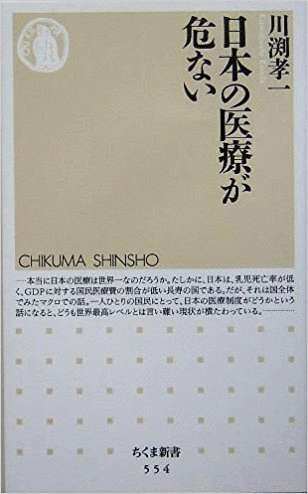 川渕孝一
Kawabuchi Koichi
日本の医療が
危ない
CHIKUMA SHINSHO
……本当に日本の医療は世界一なのだろうか。たしかに、日本は、乳児死亡率が低
く、GDPに対する国民医療費の割合が低い長寿の国である。だが、それは国全体
でみたマクロでの話。一人ひとりの国民にとって、日本の医療制度がどうかという
話になると、どうも世界最高レベルとは言い難い現状が横たわっている。…………
ちくま新書
554